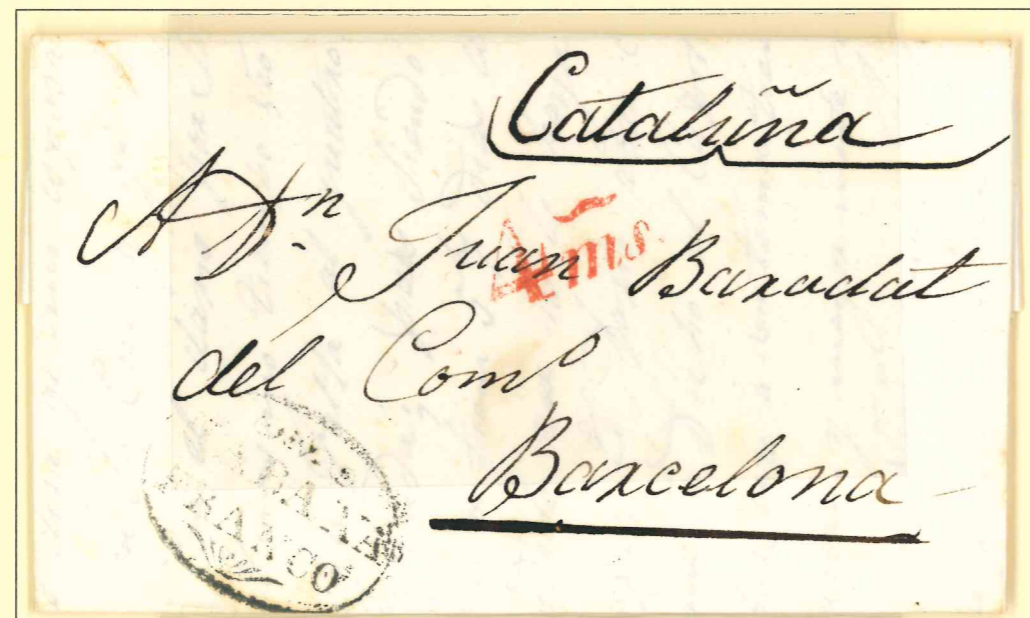 Cataluña
A Dn. Juan Baradat
del Como
Barcelona
FRANCO